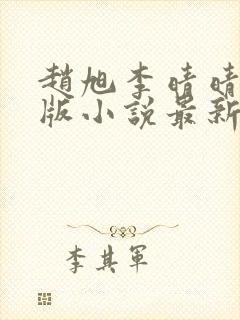 趙旭李晴晴
版小説最新
李其軍